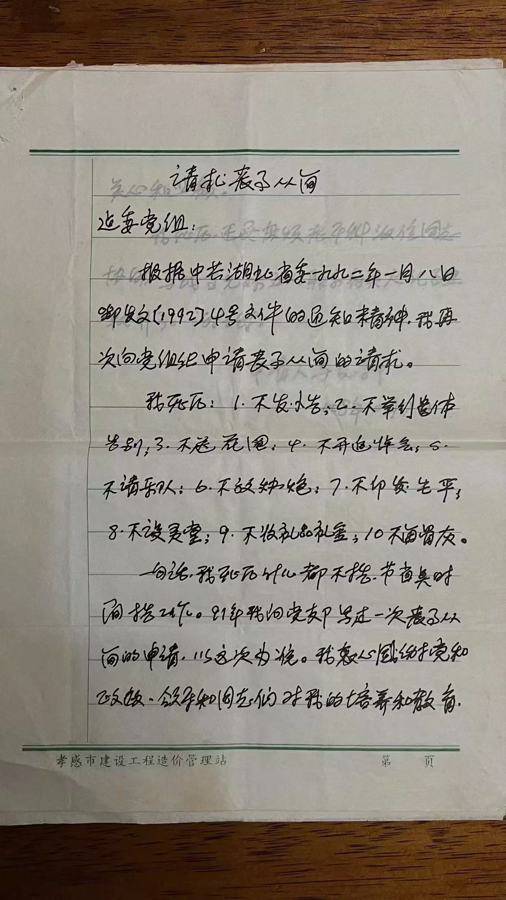 请求丧事从简
建委党组:
根据中共湖北省委一九九二年一月八日
鄂发文(1992)4号文件的通知精神,我再
次向党组织申请丧事从简的请求。
我死后:1.不发讣告;2.不举行遗体
告别;3.不送花圈;4.不开追悼会;5.
不请乐队;6.不放炮;7.不印发生平;
8.不设灵堂;9.不收礼品礼金;10不留骨灰。
一句话,我死后什么都不搞.节省时
间搞工作。91年我向党写过一次丧事从
简的申请,以这次为准。我衷心感谢党和
政府、和同志们对我的培养和教育.
孝感市建设工程造价管理站
第 页